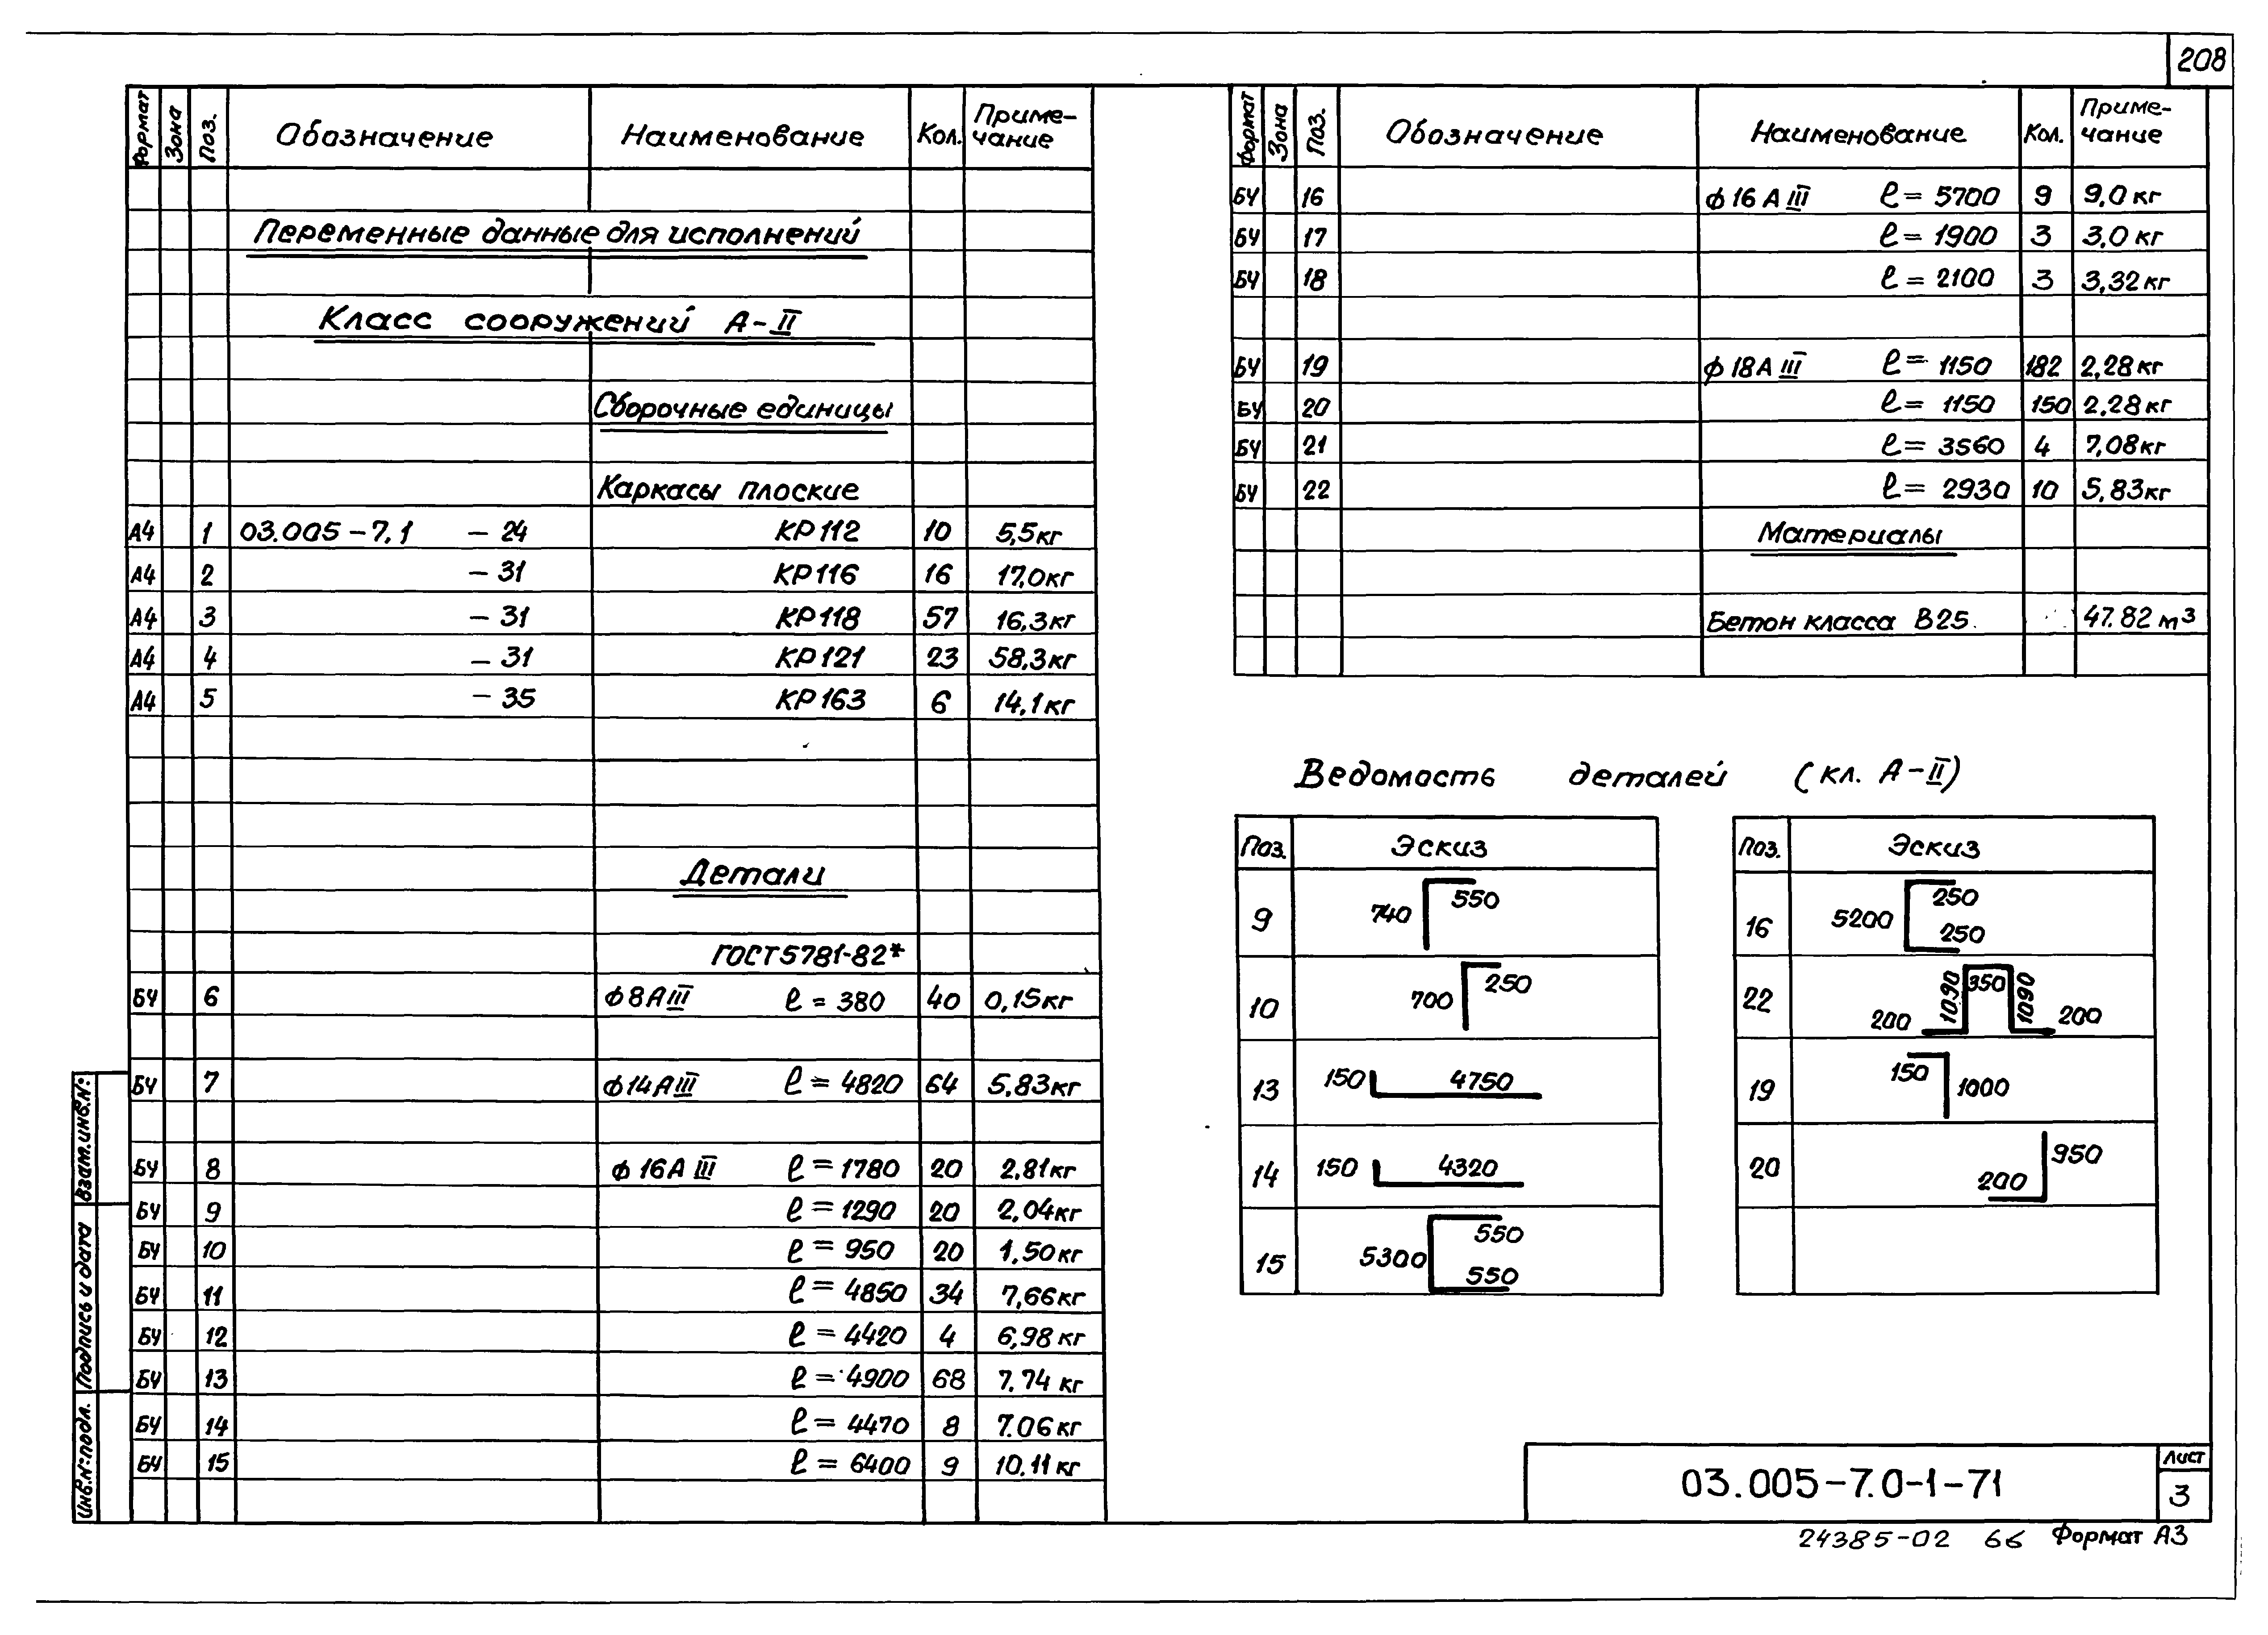 208
Формат Зона Поз. Обозначение Наименование Кол. Приме-чание
Переменные данные для исполнений
Класс сооружений А-II
Сборочные единицы
Каркасы плоские
А4 1 03.005-7.1 - 24 КР112 10 5,5кг
А4 2 - 31 КР116 16 17,0кг
А4 3 - 31 КР118 57 16,3кг
А4 4 - 31 КР121 23 58,3кг
А4 5 - 35 КР163 6 14,1кг
Детали
ГОСТ5781-82*
БЧ 6 ф8АIII ℓ = 380 40 0,15кг
БЧ 7 ф14АIII ℓ = 4820 64 5,83кг
БЧ 8 ф16АIII ℓ = 1780 20 2,81кг
БЧ 9 ℓ = 1290 20 2,04кг
БЧ 10 ℓ = 950 20 1,50кг
БЧ 11 ℓ = 4850 34 7,66кг
БЧ 12 ℓ = 4420 4 6,98кг
БЧ 13 ℓ = 4900 68 7.74 кг
БЧ 14 ℓ = 4470 8 7.06кг
БЧ 15 ℓ = 6400 9 10.11кг
Взам.инв.N:
Подпись и дата
Инв.N:подл.
Формат Зона Поз. Обозначение Наименование Кол. Приме-чание
БЧ 16 ф16АIII ℓ = 5700 9 9,0кг
БЧ 17 ℓ = 1900 3 3,0кг
БЧ 18 ℓ = 2100 3 3,32кг
БЧ 19 ф18АIII ℓ = 1150 182 2,28кг
БЧ 20 ℓ = 1150 150 2,28кг
БЧ 21 ℓ = 3560 4 7,08кг
БЧ 22 ℓ = 2930 10 5,83кг
Материалы
Бетон класса В25. 47.82 м³
Ведомость деталей (кл. А-II)
Поз. Эскиз
9 740 550
10 700 250
13 150 4750
14 150 4320
15 5300 550 550
Поз. Эскиз
16 5200 250 250
22 200 1090 350 1090 200
19 150 1000
20 200 950
03.005-7.0-1-71
Лист
3
24385-02 66 Формат А3